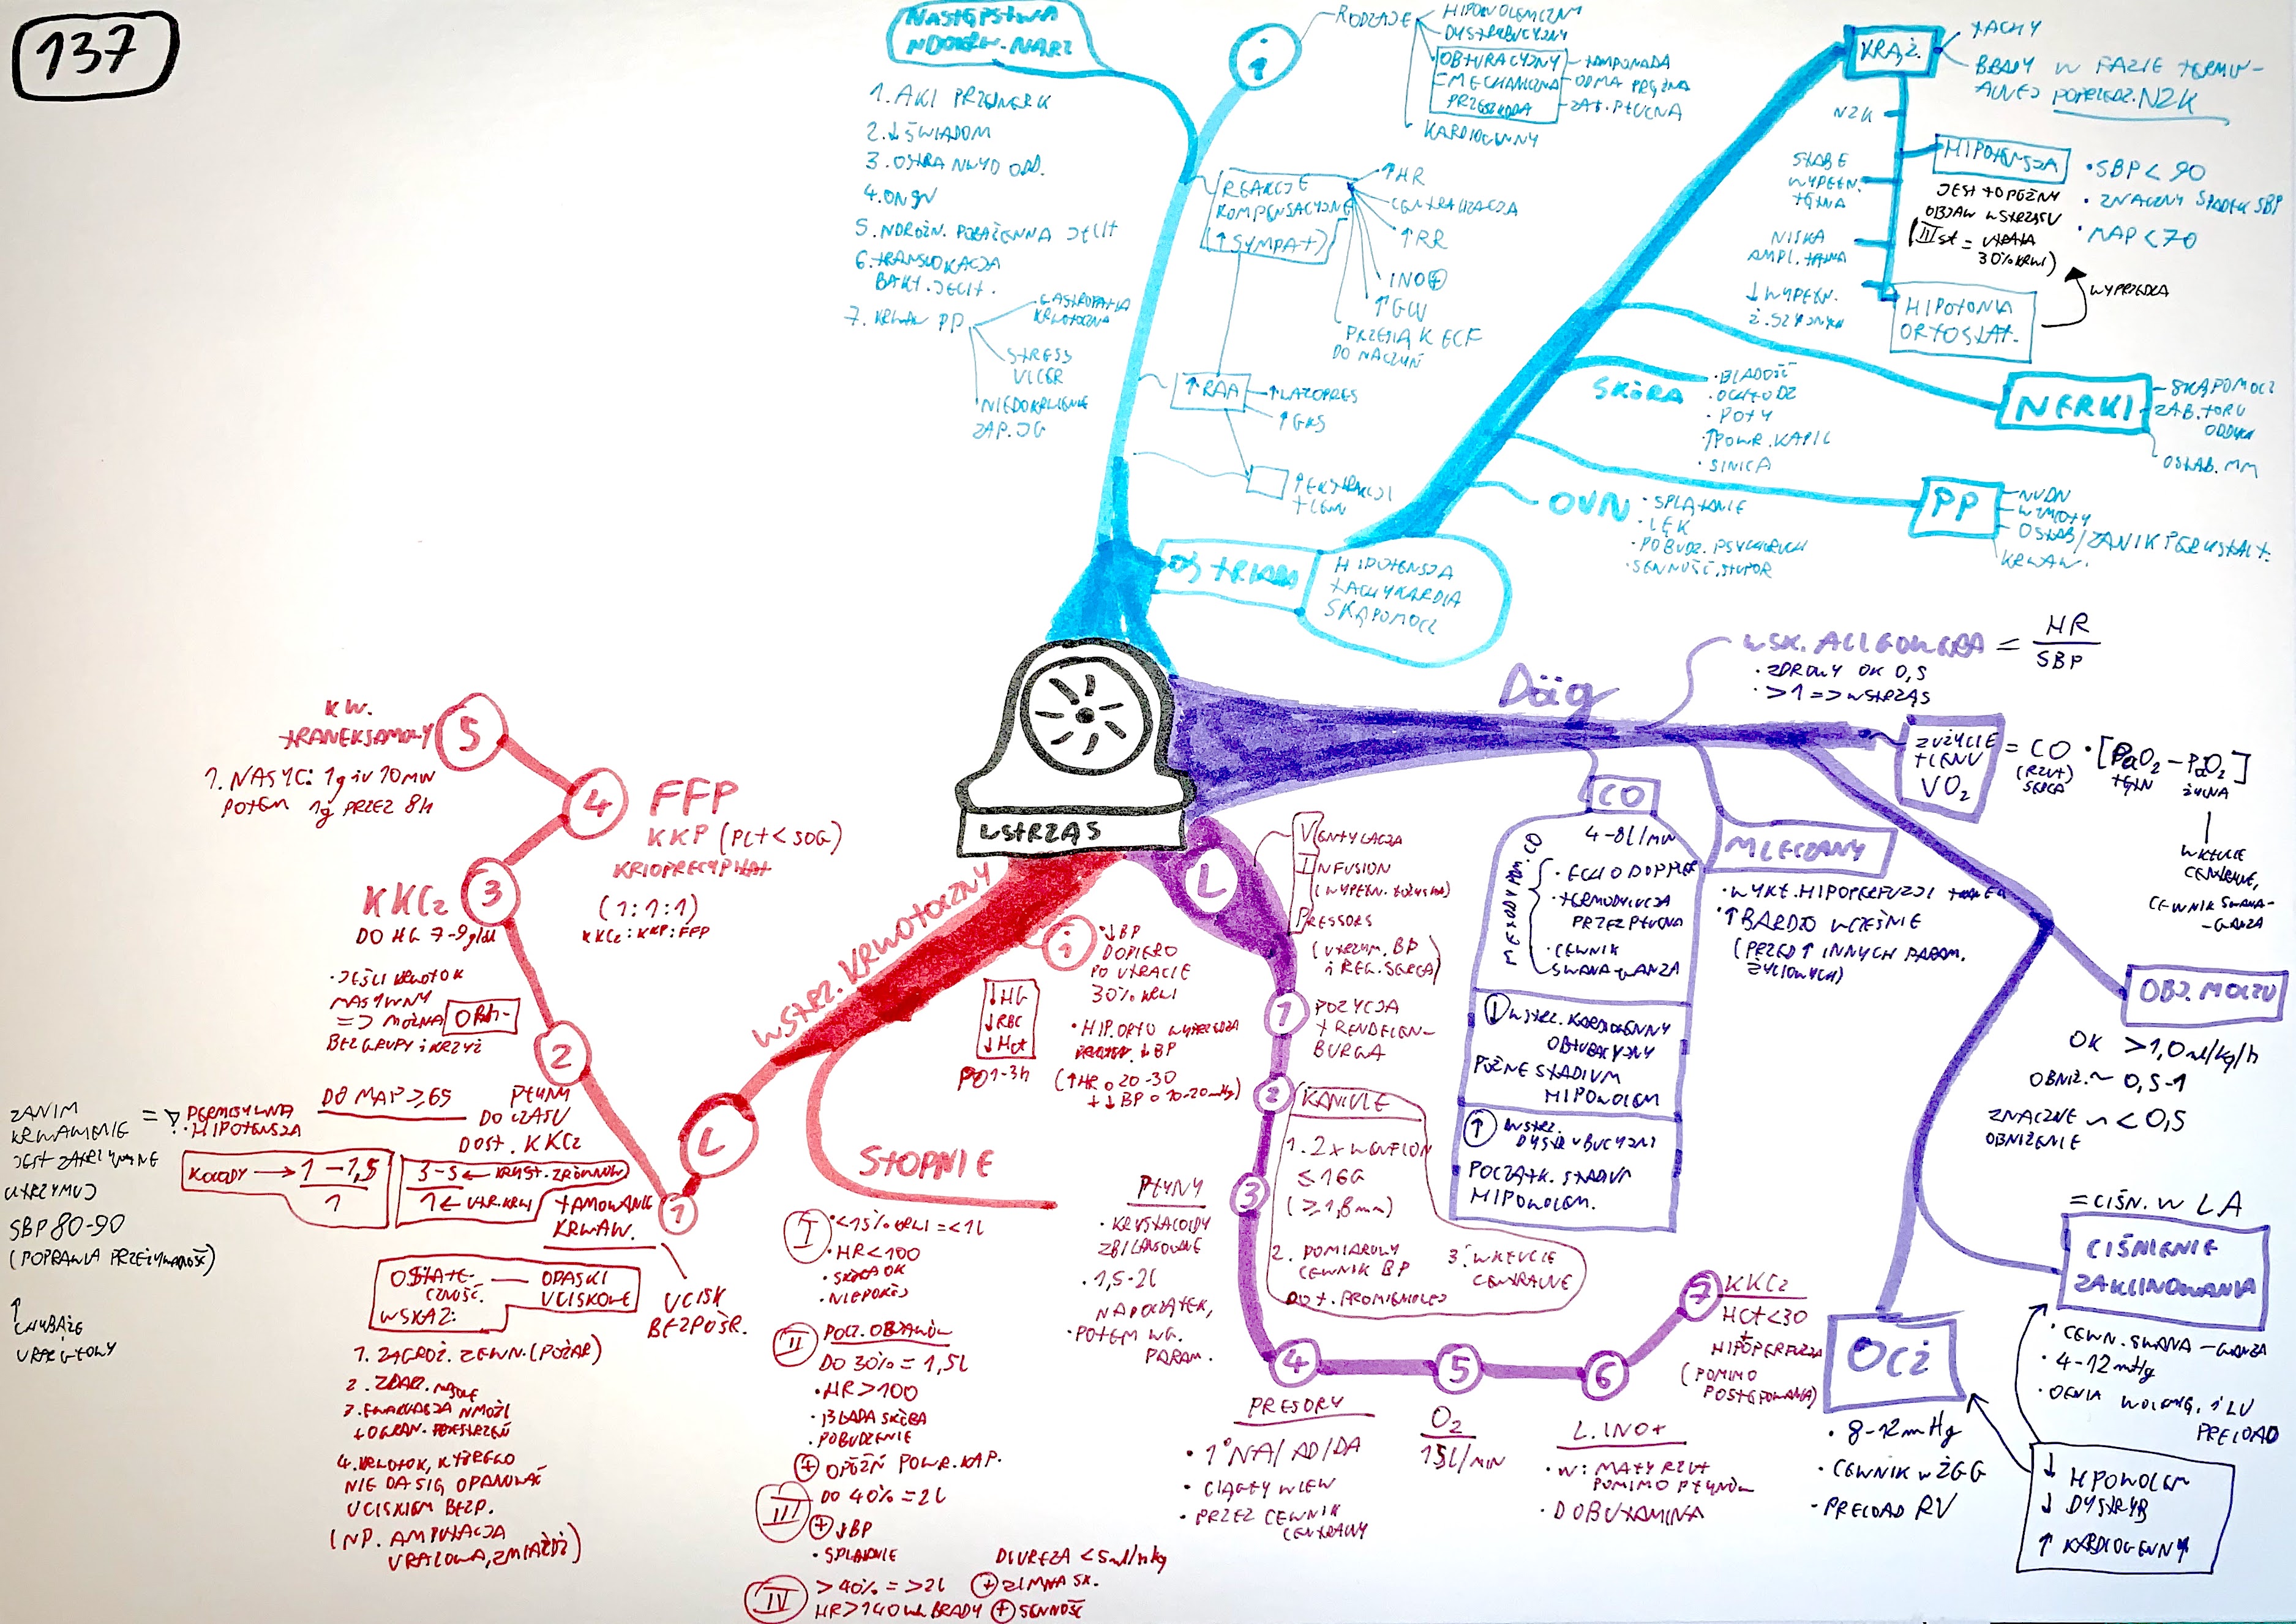 137
NASTĘPSTWA
NDOKRW. NARZ
1. AKI PRZEDNERK
2. ↓ ŚWIADOM
3. OSTRA NWYD ODD.
4. ONGN
5. NDROŻN. PORAŻENNA JELIT
6. TRANSLOKACJA
BAKT. JELIT.
7. KRWAW PP
GASTROPATIA
KRWOTOCZNA
STRESS
ULCER
NIEDOKRWIENNE
ZAP. JG
i
RODZAJE
HIPOWOLEMICZNY
DYSTRYBUCYJNY
OBTURACYJNY
= MECHANICZNA
PRZESZKODA
TAMPONADA
ODMA PRĘŻNA
ZAT. PŁUCNA
KARDIOGENNY
REAKCJE
KOMPENSACYJNE
(↑ SYMPAT)
↑HR
CENTRALIZACJA
↑RR
INO⊕
↑GW
PRZESIĄK ECF
DO NACZYŃ
↑RAA
↑WAZOPRES
↑GKS
↑EKSTRAKCJI
TLENU
HIPOTENSJA
TACHYKARDIA
SKĄPOMOCZ
KRĄŻ.
TACHY
BRADY W FAZIE TERMIN-
ALNEJ POPRZEDZ. NZK
NZK
SŁABE
WYPEŁN.
TĘTNA
NISKA
AMPL. TĘTNA
↓ WYPEŁN.
Ż. SZYJNYCH
HIPOTENSJA
• SBP < 90
• ZNACZNY SPADEK SBP
• MAP < 70
JEST TO PÓŹNY
OBJAW WSTRZĄSU
(III st = UTRATA
30% KRWI)
WYPRZEDZA
HIPOTONIA
ORTOSTAT.
SKÓRA
• BLADOŚĆ
• OCHŁODZ
• POTY
↑POWR. KAPIL
• SINICA
NERKI
SKĄPOMOCZ
ZAB. TORU
ODDYCH
OSŁAB. MM
OUN
• SPLĄTANIE
• LĘK
• POBUDZ. PSYCHORUCH
• SENNOŚĆ, STUPOR
PP
NUDN
WYMIOTY
OSŁAB/ZANIK PERYSTALT.
KRWAW.
WSTRZĄS
Däg
WSK. ALLGOWERA = HR
SBP
• ZDROWY OK 0,5
• >1 => WSTRZĄS
ZUŻYCIE
TLENU
VO2
= CO • [PaO2 − PvO2]
(RZUT)
SERCA
TĘTN
ŻYLNA
WKŁUCIE
CENTRALNE,
CEWNIK SWANA-
-GANZA
CO
4-8l/min
METODY POM. CO
• ECHO DOPPLER
• TERMODYLUCJA
PRZEZPŁUCNA
• CEWNIK
SWANA-GANZA
↓ WSTRZ. KARDIOGENNY
OBTURACYJNY
PÓŹNE STADIUM
HIPOWOLEM
↑ WSTRZ.
DYSTRYBUCYJNY
POCZĄTK. STADIUM
HIPOWOLEM.
MLECZANY
• WYKŁ. HIPOPERFUZJI TKANEK
• ↑ BARDZO WCZEŚNIE
(PRZED ↑ INNYCH PARAM.
ŻYCIOWYCH)
OBJ. MOCZU
OK >1,0 ml/kg/h
OBNIŻ. ~ 0,5-1
ZNACZNE ~ < 0,5
OBNIŻENIE
= CIŚN. W LA
CIŚNIENIE
ZAKLINOWANIA
• CEWN. SWANA-GANZA
• 4-12 mmHg
• OCENA WOLEMII, i LV
PRELOAD
OCŻ
• 8-12 mmHg
• CEWNIK W ŻGG
• PRELOAD RV
↓ HIPOWOLEM
↓ DYSTRYB
↑ KARDIOGENNY
L
VENTYLACJA
INFUSION
(WYPEŁN. ŁOŻYSKA)
PRESSORS
(UTRZYM. BP
i REG. SERCA)
1
POZYCJA
TRENDELEN-
BURGA
2
KANIULE
1. 2x WENFLON
≤ 16G
(≥ 1,8mm)
2. POMIAROWY
CEWNIK BP
DO T. PROMIENIOWEJ
3. WKŁUCIE
CENTRALNE
3
PŁYNY
• KRYSTALOIDY
ZBILANSOWANE
• 1,5-2l
NA POCZĄTEK,
• POTEM WG.
PARAM.
4
PRESORY
• 1° NA/AD/DA
• CIĄGŁY WLEW
• PRZEZ CEWNIK
CENTRALNY
5
O2
15l/min
6
L. INO+
• W: MAŁY RZUT
POMIMO PŁYNÓW
• DOBUTAMINA
7
KKCz
HCT<30
+
HIPOPERFUZJA
(POMIMO
POSTĘPOWANIA)
WSTRZ. KRWOTOCZNY
i
• ↓BP
DOPIERO
PO UTRACIE
30% KRWI
• HIP. ORTO WYPRZEDZA
↓BP
(↑HR o 20-30
+ ↓BP o 10-20 mmHg)
↓HG
↓RBC
↓Hct
PO 1-3h
STOPNIE
I
• <15% KRWI = <1l
• HR<100
• SKÓRA OK
• NIEPOKÓJ
II
POCZ. OBJAWÓW
DO 30% = 1,5l
• HR>100
• BLADA SKÓRA
• POBUDZENIE
⊕ OPÓŹN POWR. KAP.
III
DO 40% = 2l
⊕ ↓BP
• SPLĄTANIE
DIUREZA < 5ml/h/kg
IV
>40% = >2l ⊕ ZIMNA SK.
HR>140 lub BRADY ⊕ SENNOŚĆ
L
1
TAMOWANIE
KRWAW.
UCISK
BEZPOŚR.
OSTATE-
CZNOŚĆ.
WSKAZ:
OPASKI
UCISKOWE
1. ZAGROŻ. ZEWN. (POŻAR)
2. ZDARZ. MNOGIE
3. EWAKUACJA NMOŻL
+ OGRAN. PRZESTRZEŃ
4. KRWOTOK, KTÓREGO
NIE DA SIĘ OPANOWAĆ
UCISKIEM BEZP.
(NP. AMPUTACJA
URAZOWA, ZMIAŻDŻ)
2
PŁYNY
DO CZASU
DOST. KKCz
DO MAP ≥65
PERMISYWNA
HIPOTENSJA
KOLOIDY → 1-1,5
1
3-5 ← KRYST. ZRÓWNOW
1 ← UTR. KRWI
ZANIM
KRWAWIENIE
JEST ZATRZYMANE
UTRZYMUJ
SBP 80-90
(POPRAWIA PRZEŻYWALNOŚĆ)
↑
CHYBA ŻE
URAZ GŁOWY
3
KKCz
DO HG 7-9g/dl
• JEŚLI KRWOTOK
MASYWNY
=> MOŻNA ORh-
BEZ GRUPY i KRZYŻ
4
FFP
KKP (PLT < 50G)
KRIOPRECYPITAT
(1:1:1)
KKCz : KKP : FFP
5
KW.
TRANEKSAMOWY
1. NASYC: 1g iv 10min
POTEM 1g PRZEZ 8h